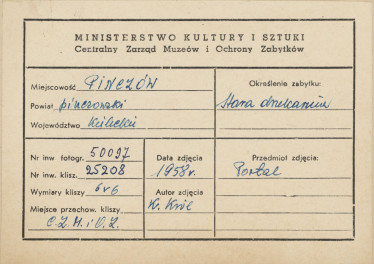 MINISTERSTWO KULTURY I SZTUKI
Centralny Zarząd Muzeów i Ochrony Zabytków
Miejscowość PIŃCZÓW
Powiat pińczowski
Województwo Kielecki
Określenie zabytku:
Stara drukarnia
Nr inw fotogr. 50097
Nr inw. klisz. 25208
Wymiary kliszy 6x6
Miejsce przechow. kliszy
C.Z.M. i O.Z.
Data zdjęcia
1958 r.
Autor zdjęcia
K. Król
Przedmiot zdjęcia:
Portal